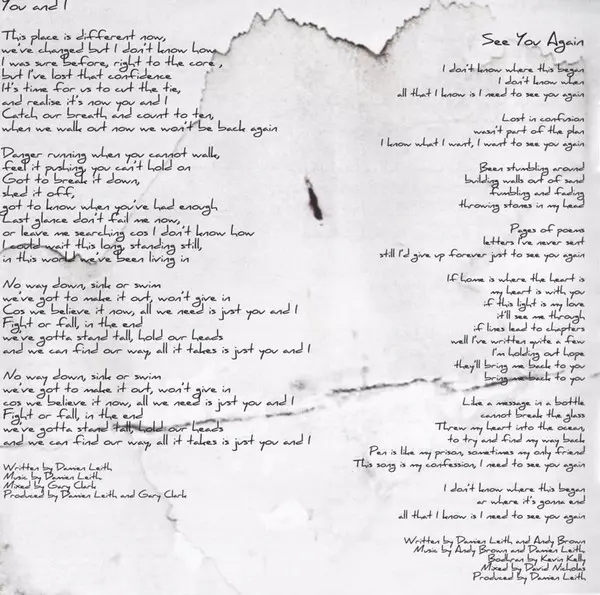 You and I
This place is different now,
we've changed but I don't know how
I was sure before, right to the core ,
but I've lost that confidence
It's time for us to cut the tie,
and realise it's now you and I
Catch our breath and count to ten,
when we walk out now we won't be back again
Danger running when you cannot walk,
feel it pushing, you can't hold on
Got to break it down,
shed it off,
got to know when you've had enough
Last glance don't fail me now,
or leave me searching cos I don't know how
I could wait this long, standing still,
in this world we've been living in
No way down, sink or swim
we've got to make it out, won't give in
Cos we believe it now, all we need is just you and I
Fight or fall, in the end
we've gotta stand tall, hold our heads
and we can find our way, all it takes is just you and I
No way down, sink or swim
we've got to make it out, won't give in
cos we believe it now, all we need is just you and I
Fight or fall, in the end
we've gotta stand tall, hold our heads
and we can find our way, all it takes is just you and I
Written by Damien Leith
Music by Damien Leith
Mixed by Gary Clark
Produced by Damien Leith and Gary Clark
See You Again
I don't know where this began
I don't know when
all that I know is I need to see you again
Lost in confusion
wasn't part of the plan
I know what I want, I want to see you again
Been stumbling around
building walls out of sand
fumbling and fading
throwing stones in my head
Pages of poems
letters I've never sent
still I'd give up forever just to see you again
If home is where the heart is
my heart is with you
if this light is my love
it'll see me through
if lines lead to chapters
well I've written quite a few
I'm holding out hope
they'll bring me back to you
bring me back to you
Like a message in a bottle
cannot break the glass
Threw my heart into the ocean,
to try and find my way back
Pen is like my prison, sometimes my only friend
This song is my confession, I need to see you again
I don't know where this began
or where it's gonna end
all that I know is I need to see you again
Written by Damien Leith and Andy Brown
Music by Andy Brown and Damien Leith
Bodhran by Kevin Kelly
Mixed by David Nicholas
Produced by Damien Leith